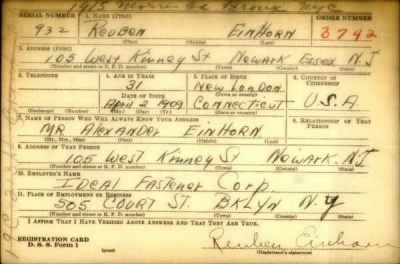 1915 Morris Av Bronx NYC
SERIAL NUMBER 1. NAME (Print) ORDER NUMBER
932 Reuben EinHorn 3742
(First) (Middle) (Last)
2. ADDRESS (Print)
105 West Kinney St Newark Essex N.J
(Number and street or R. F. D. number) (Town) (County) (State)
3. TELEPHONE 4. AGE IN YEARS 5. PLACE OF BIRTH 6. COUNTRY OF CITIZENSHIP
31 New London
DATE OF BIRTH (Town or county)
April 2 1909 Connecticut U.S.A.
(Exchange) (Number) (Mo.) (Day) (Yr.) (State or country)
7. NAME OF PERSON WHO WILL ALWAYS KNOW YOUR ADDRESS 8. RELATIONSHIP OF THAT PERSON
MR Alexander EinHorn
(Mr., Mrs., Miss) (First) (Middle) (Last)
9. ADDRESS OF THAT PERSON
105 West Kinney St Newark. N.J.
(Number and street or R. F. D. number) (Town) (County) (State)
10. EMPLOYER'S NAME
Ideal Fastener Corp.
11. PLACE OF EMPLOYMENT OR BUSINESS
505 Court St. BKLYN N.Y
(Number and street or R. F. D. number) (Town) (County) (State)
I AFFIRM THAT I HAVE VERIFIED ABOVE ANSWERS AND THAT THEY ARE TRUE.
REGISTRATION CARD
D. S. S. Form 1 (over) Reuben Einhorn
(Registrant's signature)